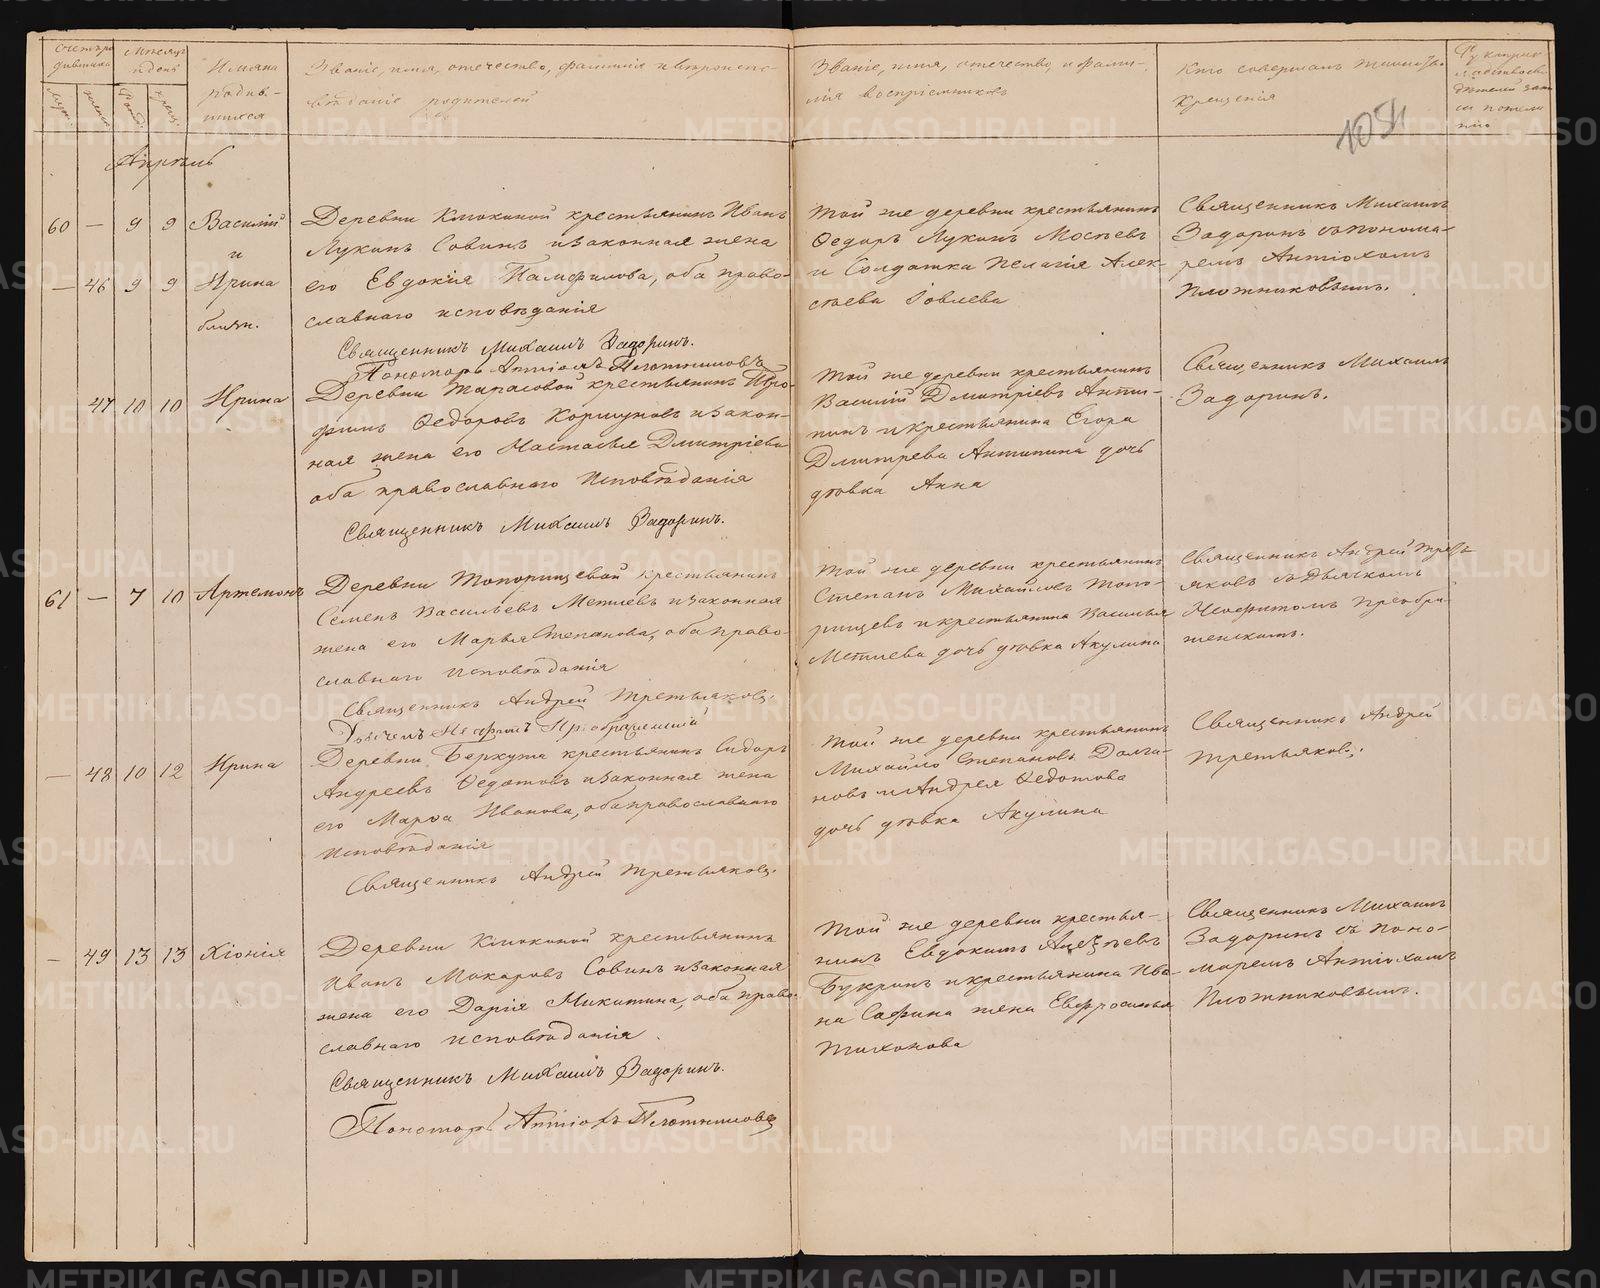 Счетъ ро
дившихся
Мѣсяцъ
и день
Имена
родив-
шихся
Званіе, имя, отечество, фамилія и вѣроиспо-
вѣданіе родителей
Званіе, имя, отечество и фами-
лія воспріемниковъ
Кто совершалъ таинство
крещенія
Муж.
женск.
Рожд.
крещ.
Апрѣль
60 — 9 9 Василій
и
— 46 9 9 Ирина
близн.
Деревни Клюкиной крестьянинъ Иванъ
Лукинъ Совинъ и законная жена
его Евдокія Памфилова, оба право-
славнаго исповѣданія
Священникъ Михаилъ Задоринъ.
Пономарь Антіохъ Плотниковъ
Той же деревни крестьянинъ
Ѳедоръ Лукинъ
и Солдатка Пелагія Алек-
сѣева Іовлева
Священникъ Михаилъ
Задоринъ съ понома-
ремъ Антіохомъ
Плотниковымъ.
47 10 10 Ирина
Деревни Тарасовой крестьянинъ Про-
фимъ Ѳедоровъ Коршуновъ и закон-
ная жена его Настасья Дмитріева
оба православнаго исповѣданія
Священникъ Михаилъ Задоринъ.
Той же деревни крестьянинъ
Василій Дмитріевъ Анти-
пинъ и крестьянина Егора
Дмитрева Антипина дочь
дѣвка Анна
Священникъ Михаилъ
Задоринъ.
61 — 7 10 Артемонъ
Деревни Топорищевой крестьянинъ
Семенъ Васильевъ Метлевъ и законная
жена его Марья Степанова, оба право-
славнаго исповѣданія
Священникъ Андрей Третьяковъ.
Дьячекъ Неофитъ Преображенскій
Той же деревни крестьянинъ
Степанъ Михайловъ Топо-
рищевъ и крестьянина Василья
Метлева дочь дѣвка Акулина
Священникъ Андрей Треть-
яковъ съ дьячкомъ
Неофитомъ Преобра-
женскимъ.
— 48 10 12 Ирина
Деревни Беркута крестьянинъ Сидоръ
Андреевъ Ѳедотовъ и законная жена
его Марѳа Иванова, оба православнаго
исповѣданія
Священникъ Андрей Третьяковъ.
Той же деревни крестьянинъ
Михайло Степановъ Долга-
новъ и Андрея Ѳедотова
дочь дѣвка Акулина
Священникъ Андрей
Третьяковъ.
— 49 13 13 Хіонія
Деревни Клюкиной крестьянинъ
Иванъ Макаровъ Совинъ и законная
жена его Дарія Никитина, оба право-
славнаго исповѣданія.
Священникъ Михаилъ Задоринъ.
Пономарь Антіохъ Плотниковъ
Той же деревни крестья-
нинъ Евдокимъ
Букринъ и крестьянина Ива-
на Сафина жена Евфросинья
Тихонова
Священникъ Михаилъ
Задоринъ съ поно-
маремъ Антіохомъ
Плотниковымъ.
METRIKI.GASO-URAL.RU